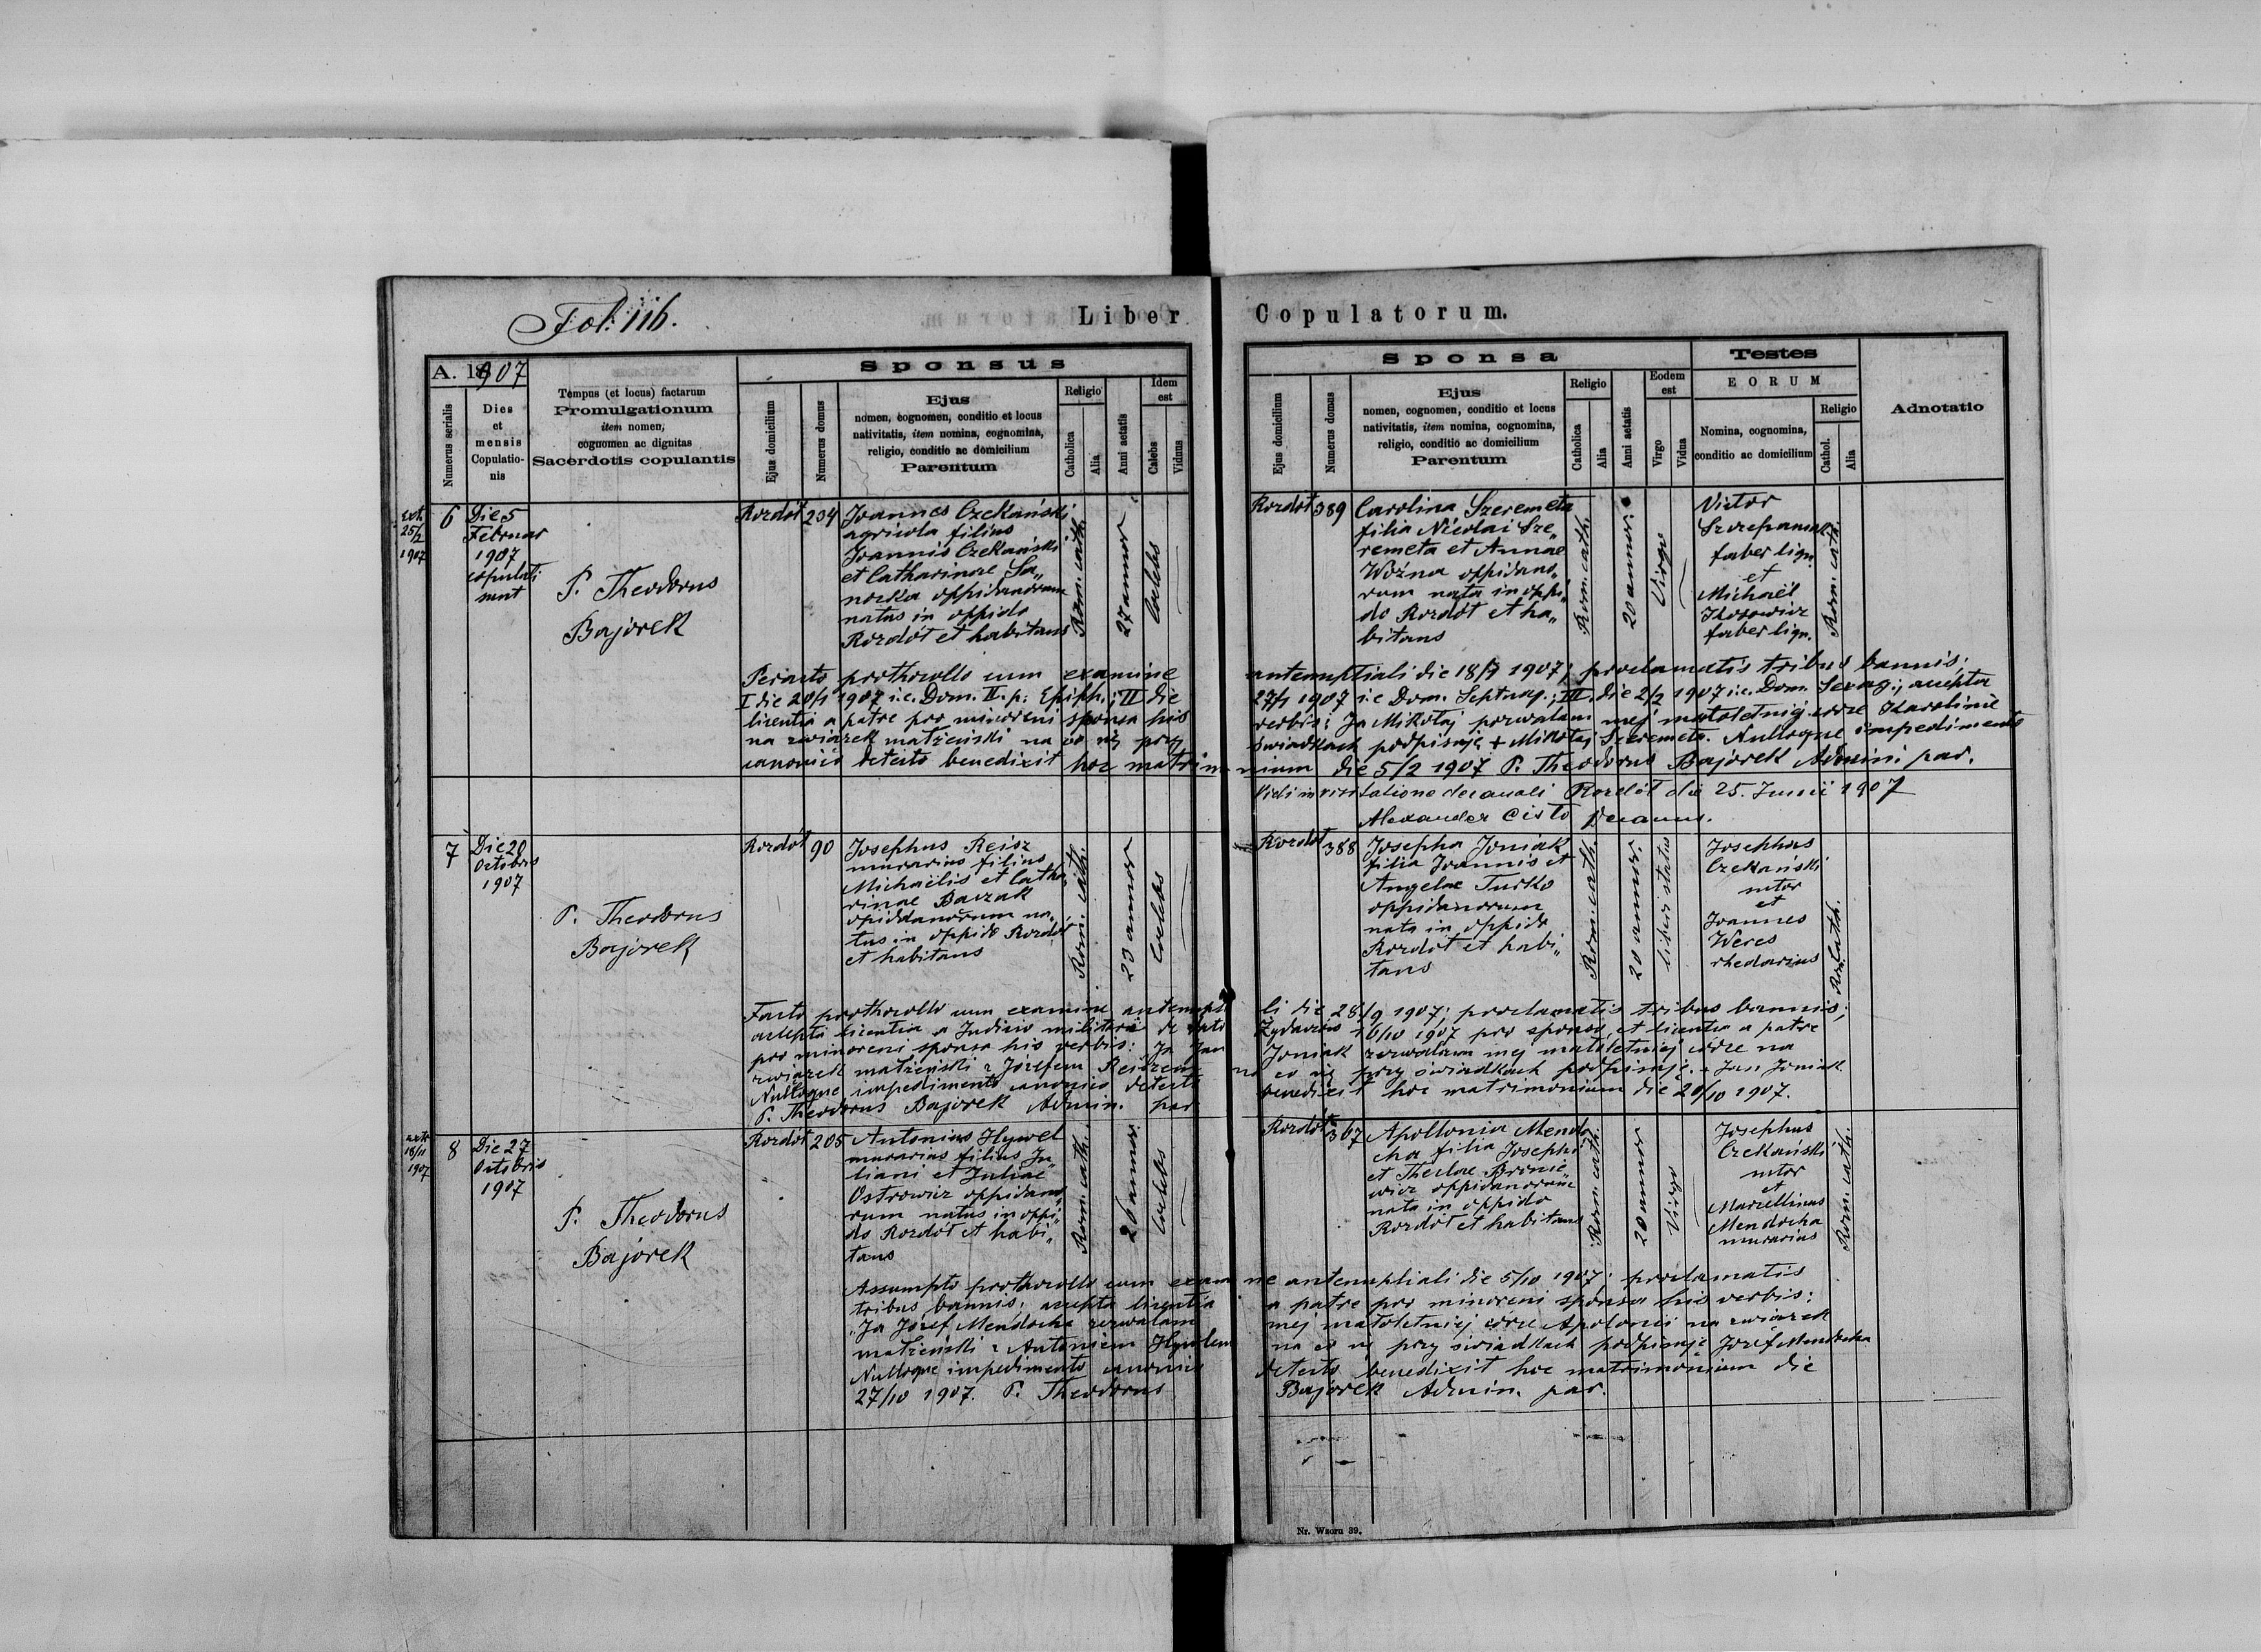 Fol. 116.
Liber Copulatorum.
A. 1907
Numerus serialis
Dies
et
mensis
Copulatio-
nis
Tempus (et locus) factarum
Promulgationum
item nomen,
cognomen ac dignitas
Sacerdotis copulantis
Sponsus
Ejus domicilium
Numerus domus
Ejus
nomen, cognomen, conditio et locus
nativitatis, item nomina, cognomina,
religio, conditio ac domicilium
Parentum
Religio
Catholica
Alia
Anni aetatis
Idem
est
Caelebs
Viduus
Sponsa
Ejus domicilium
Numerus domus
Ejus
nomen, cognomen, conditio et locus
nativitatis, item nomina, cognomina,
religio, conditio ac domicilium
Parentum
Religio
Catholica
Alia
Anni aetatis
Eodem
est
Virgo
Vidua
Testes
EORUM
Nomina, cognomina,
conditio ac domicilium
Religio
Cathol.
Alia
Adnotatio
extr.
25/2
1907
6
Die 5
Februar
1907
copulati
sunt
P. Theodorus
Bajorek
Rozdół
234
Joannes Czekański
agricola filius
Joannis Czekański
et Catharinae Sa„
nocka oppidanorum
natus in oppido
Rozdół et habitans
Rom. cath.
27 annor.
Caelebs
Rozdół
389
Carolina Szeremeta
filia Nicolai Sze„
remeta et Annae
Woźna oppidano„
rum nata in oppi„
do Rozdół et ha„
bitans
Rom. cath.
20 annor.
Virgo
Victor
faber lign.
et
Michaël
faber lign.
Rom. cath.
Peracto prothocollo cum examine antenuptiali die 18/1 1907; proclamatis tribus bannis:
I die 20/1 1907 i.e. Dom. II. p. Epiph.; II die 27/1 1907 i.e Dom. Septuag.; III. die 2/2 1907 i.e. Dom. Sexag.; accepta
licentia a patre pro minoreni sponsa his verbis: Ja Mikołaj pozwalam mej małoletniej córce Karolinie
na związek małżeński na co się przy świadkach podpisuję + Mikołaj Szeremeta. Nulloque impedimento
canonico detecto benedixit hoc matrimonium die 5/2 1907 P. Theodorus Bajorek Admin. par.
Vidi in visitatione decanali Rozdół die 25. Junii 1907
Alexander Cisło Decanus.
7
Die 20
Octobris
1907
P. Theodorus
Bajorek
Rozdół
90
Josephus Reisz
murarius filius
Michaëlis et Catha„
rinae Baczak
opiddanorum na„
tus in oppido Rozdół
et habitans
Rom. cath.
23 annor
Coelebs
Rozdół
388
Josepha Joniak
filia Joannis et
Angelae Turko
oppidanorum
nata in oppido
Rozdół et habi„
tans
Rom. cath.
20 annor.
liberi status
Josephus
Czekański
sutor
et
Joannes
Weres
rhedarius
Rom. cath.
Facto prothocollo cum examine antenuptiali die 28/9 1907; proclamatis tribus bannis;
accepta licentia a Judicio militari de dato Żydaczów 16/10 1907 pro sponso, et licentia a patre
pro minoreni sponsa his verbis: Ja Jan Joniak zezwalam mej małoletniej córce na
związek małżeński z Józefem Reiszem na co się przy świadkach podpisuję. Jan Joniak
Nulloque impedimento canonico detecto benedixit hoc matrimonium die 20/10 1907.
P. Theodorus Bajorek Admin. par.
extr.
18/11
1907
8
Die 27
Octobris
1907
P. Theodorus
Bajorek
Rozdół
205
Antonius Hywel
murarius filius Ju„
liani et Juliae
Ostrowicz oppidano„
rum natus in oppi„
do Rozdół et habi„
tans
Rom. cath.
26 annor.
Coelebs
Rozdół
367
Apollonia Mendo„
cha filia Josephi
et Theclae Bronie„
wicz oppidanorum
nata in oppido
Rozdół et habitans
Rom. cath.
20 annor
Virgo
Josephus
Czekański
sutor
et
Marcellinus
Mendocha
murarius
Rom. cath.
Assumpto prothocollo cum examine antenuptiali die 5/10 1907; proclamatis
tribus bannis; accepta licentia a patre pro minoreni sponsa his verbis:
„Ja Józef Mendocha zezwalam mej małoletniej córce Apolonii na związek
małżeński z Antonim Hywlem na co się przy świadkach podpisuję Józef Mendocha
Nulloque impedimento canonico detecto benedixit hoc matrimonium die
27/10 1907. P. Theodorus Bajorek Admin. par.
Nr. Wzoru 39.